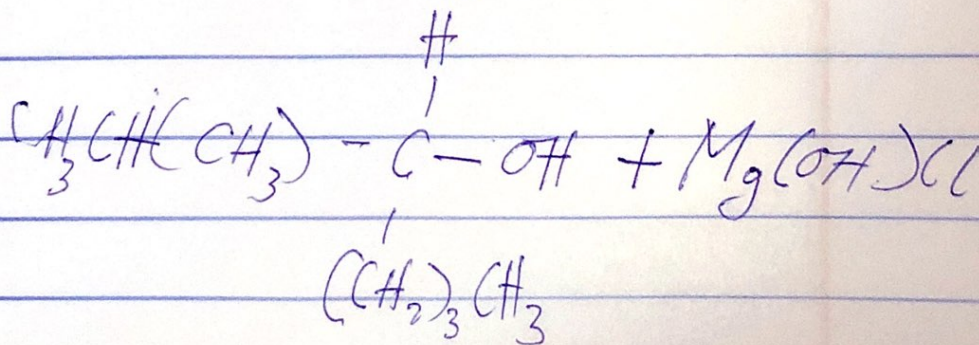 H
CH₃CH(CH₃) - C - OH + Mg(OH)Cl
(CH₂)₃CH₃